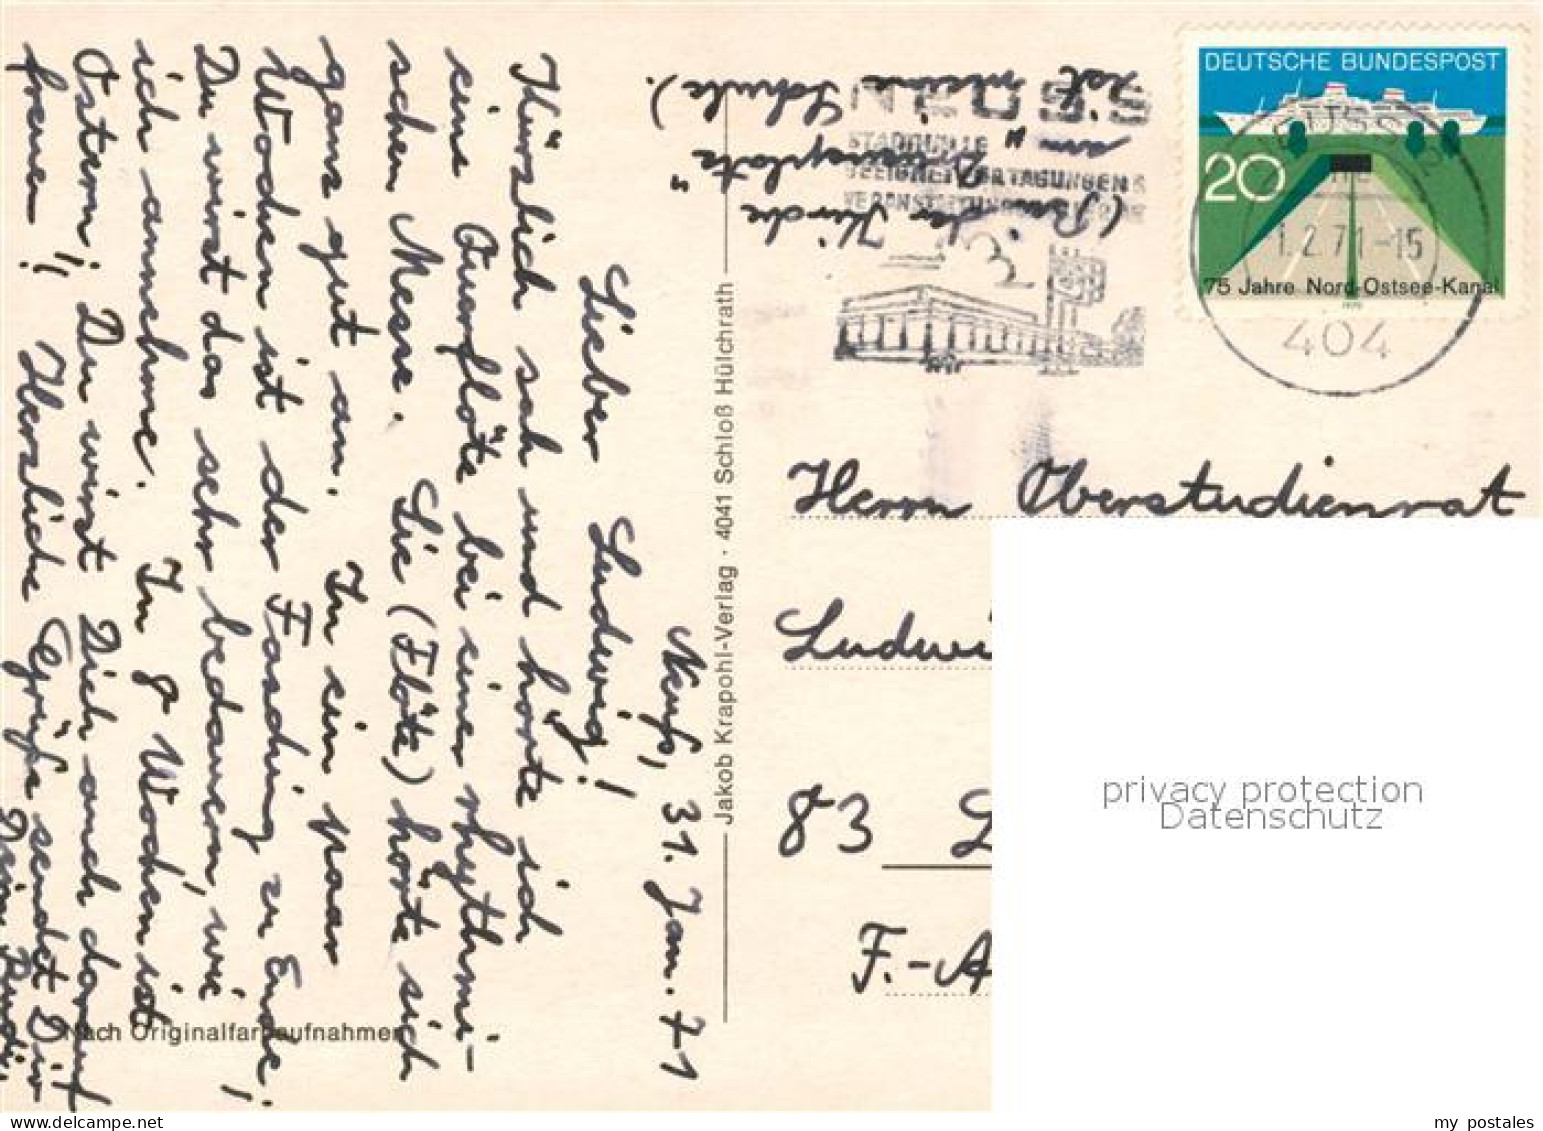 Neuß, 31. Jan. 71
Lieber Ludwig!
Kürzlich sah und hörte ich
eine Querflöte bei einer rhythmi-
schen Messe. Sie (Flöte) hörte sich
ganz gut an. In ein paar
Wochen ist der Fasching zu Ende!
Du wirst das sehr bedauern, wie
ich annehme. In 8 Wochen ist
Ostern; Du wirst Dich auch darauf
freuen! Herzliche Grüße sendet Dir
Dein
(Bei der Kirche
am
ist meine Schule).
Nach Originalfarbaufnahmen
Jakob Krapohl-Verlag · 4041 Schloß Hülchrath
NEUSS
STADTHALLE
GEEIGNET TAGUNGEN &
VERANSTALTUNGEN
DEUTSCHE BUNDESPOST
20
75 Jahre Nord-Ostsee-Kanal
1.2.71-15
404
Herrn Oberstudienrat
Ludwi
83 L
F.-A
privacy protection
Datenschutz
delcampe.net
my_postales